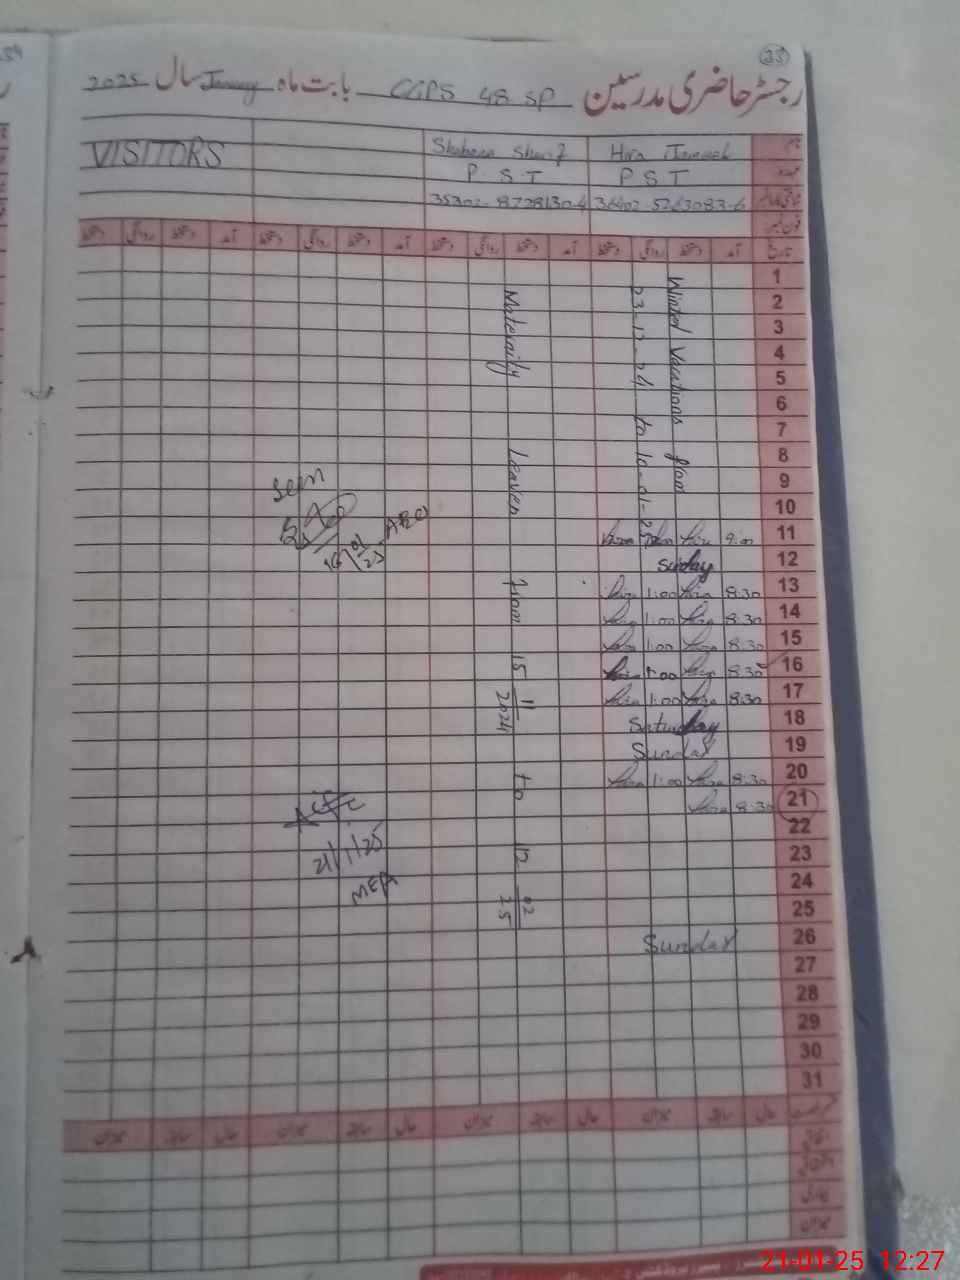 23
رجسٹر حاضری مدرسین CGPS 48 SP بابت ماہ January سال 2025
نام Hira Shaheena Sharif VISITORS
عہدہ P S T P S T
شناختی کارڈ نمبر 36402-5263083-6 35302-8728130-4
فون نمبر
تاریخ آمد دستخط روانگی دستخط آمد دستخط روانگی دستخط آمد دستخط روانگی دستخط آمد دستخط روانگی دستخط
Winter Vacations from
23-12-24 to 10-01-25
Maternity Leaves from 15 11 2024 to 12 02 25
1
2
3
4
5
6
7
8
9
10
11 9:00 Hira Hira
12 Sunday
13 8:30 Hira 1:00 Hira
14 8:30 Hira 1:00 Hira
15 8:30 Hira 1:00 Hira
16 8:30 Hira 1:00 Hira
17 8:30 Hira 1:00 Hira
18 Saturday
19 Sunday
20 8:30 Hira 1:00 Hira
21 8:30 Hira
22
23
24
25
26 Sunday
27
28
29
30
31
Seen
16/01/25
21/1/25
MEA
میزان سابقہ حال میزان سابقہ حال میزان سابقہ حال
اتفاقیہ
میزان
21-01-25 12:27